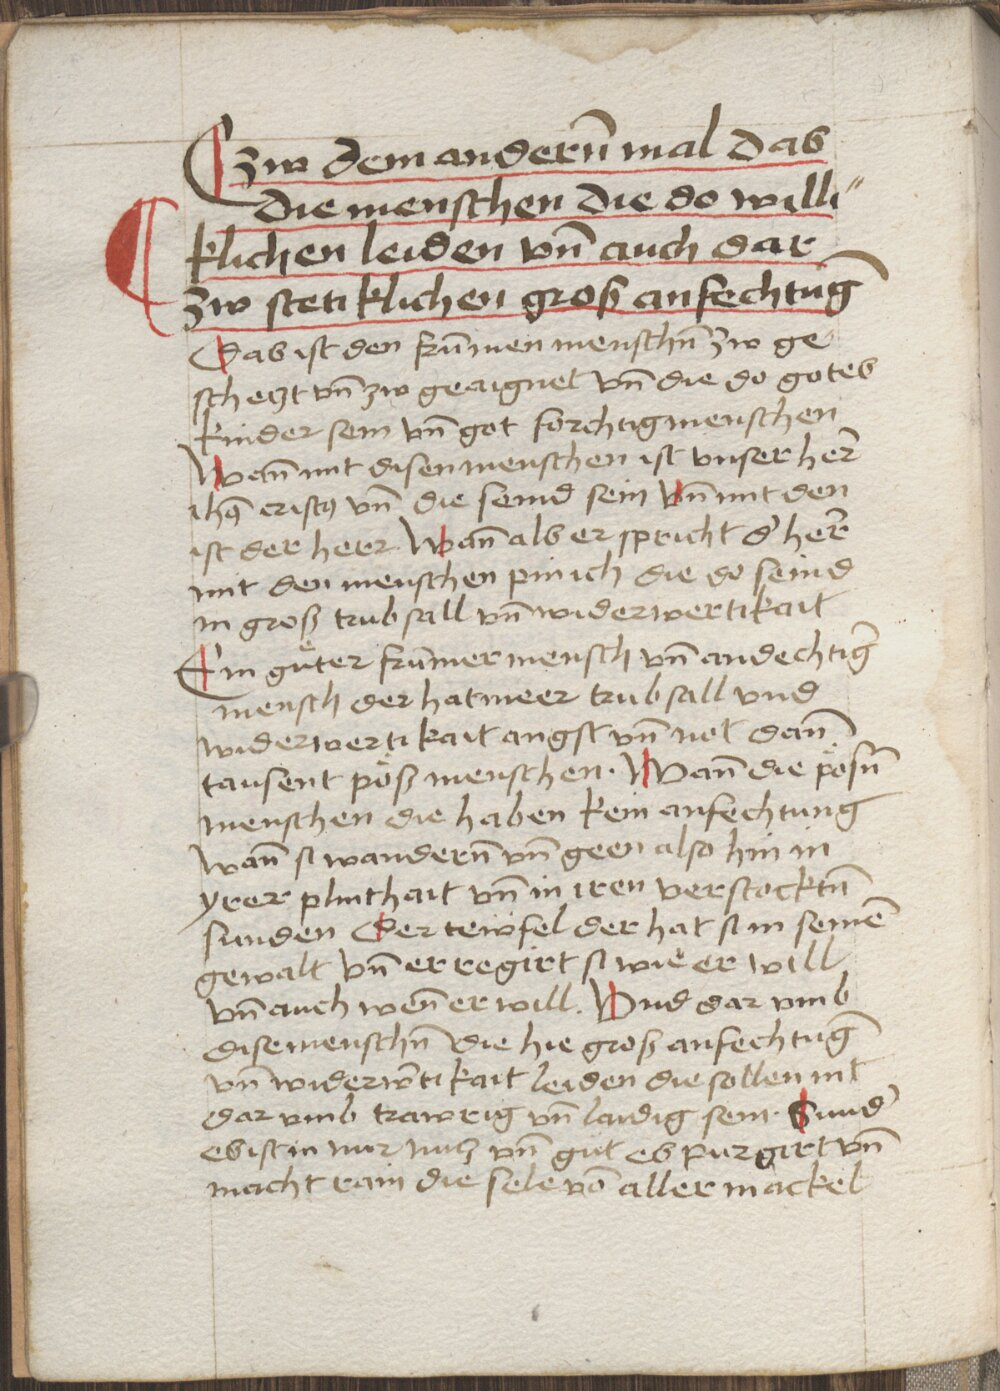 Zw dem anderñ mal das
die menschen die do willi„
klichen leiden vñ auch dar
zw stetiklichen groß anfechtũg
Das ist den frũmen menschñ zw ge
scheczt vñ zw geaignet vñ die do gotes
kinder sein vñ got forchtig menschen
Wañ mit disen menschen ist vnser her̃
ihꝰ cristꝰ vñ die seind sein Vñ mit den
ist der herr Wañ als er spricht d' her̃
mit den menschen pin ich die do seind
in groß trubsall vñ widerwertikait
Ein gůter frũmer mensch vñ andechtig̃
mensch der hat meer trubsall vnd
widerwertikait angst vñ not dañ
tausent pöß menschen. Wañ die pösñ
menschen die haben kein anfechtung
wañ si wanderñ vñ geen also hin in
yrer plinthait vñ in iren verstocktñ
sunden Der tewfel der hat si in seinẽ
gewalt vñ er regirt si wie er will
vñ auch weñ er will. Vnd dar vmb
dise menschñ die hie groß anfechtũg
vñ widerw̃tikait leiden die sollen nit
dar vmb trawrig vñ laidig sein. Sund'
es ist in nur nucz vñ gut es purgirt vñ
macht rain die sele võ aller mackel